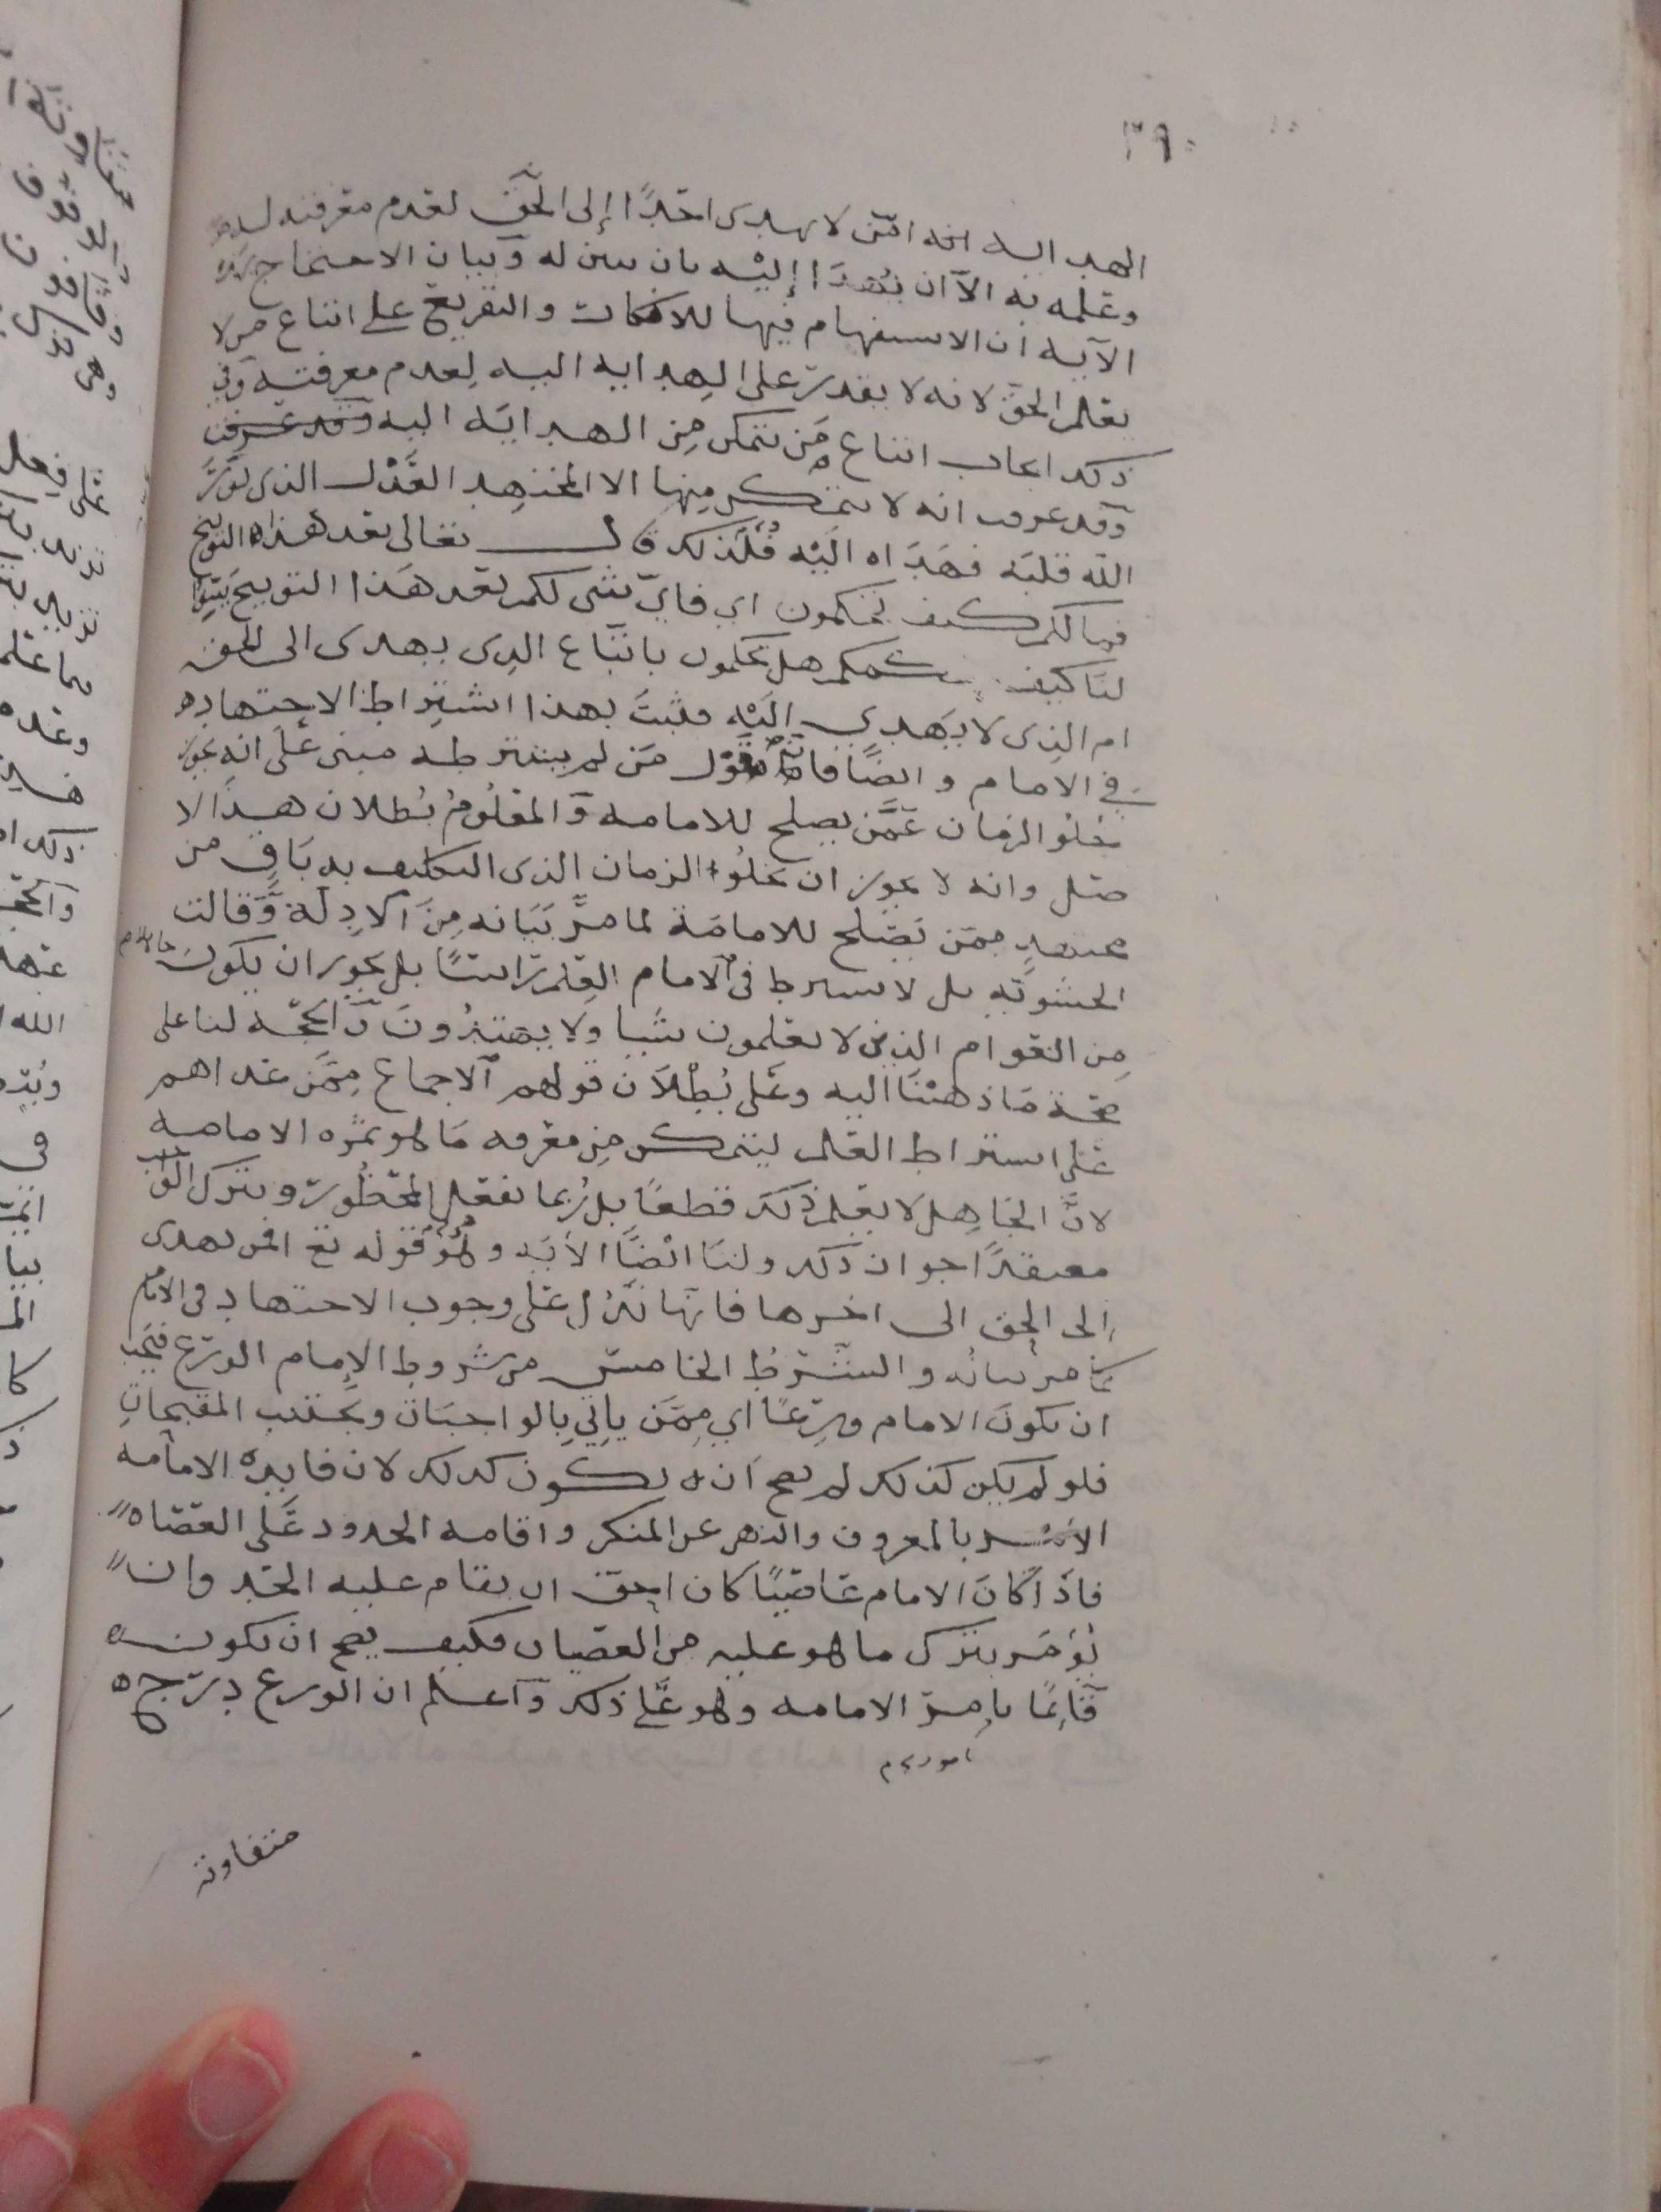 ٣٩٠
الهد اليه امن لا يهدى احدًا إلى الحق لعدم معرفته له
وعلمه به الا ان يُهدَا إليْه بان يبين له وبيان الاحتجاج بهذه
الآيه ان الاستفهام فيها للانكار والتقريع على اتباع من لا
يعلم الحق لانه لا يقدر على الهدايه اليه لِعدم معرفته وفي
ذلك ايجاب اتباع مَن يتمكن مِن الهدايَه اليه
وقد عرفت انه لا يتمكن مِنها الا المجتهِد العَدْل الذى نوّرَ
الله قلبَه فهَدَاه اليْه فلذلك قال تعالى بعد هذا التوبيخ
فمالكم كيف تحكمون اي فايّ شى لكم بعد هَذا التوبيخ بيّنوا
لنا كيف حكمكم هل تحكمون باتباع الذِى يهدى الى الحق
ام الذِى لا يَهدي إليْه فثبتَ بهذا اشتراط الاجتهاد
في الامام وايضًا فانّ قوْل مَن لم يشترطه مبنى عَلَى انه يجوز
خلو الزمان عَمَّن يصلح للامامه وَالمعْلُومُ بُطلان هذا الا
صل وانه لا يجوز ان يخلُو الزمان الذى التكليف به بَاقٍ من
مجتهدٍ ممّن يَصْلح للامامَة لما مرَّ بَيَانه مِنَ الادِلّة وَقالت
الحشويّه بل لا يشترط فى الامام العِلم راسًا بل يجوز ان يكونَ جاهلا
مِن العَوام الذين لا يعْلمون شيا ولا يهتدُونَ وَالحجّه لنا على
صحّة مَا ذهبْنَا اليه وعَلى بُطْلاَن قولهم الاجماع مِمَّن عداهم
عَلى اشتراط العلم ليتمكن مِن معْرفه مَا هو ثمَره الامامه
لانَّ الجَاهِل لا يعْلم ذلكَ قطعًا بل رُبما يفعَل المحْظُورَ ويترك الوَاجب
معتقدًا جواز ذلك ولنَا ايْضًا الآيَه وهُوَ قوله تع افمن يهدى
إلى الحق الى اخرها فانها تدُل عَلى وجوب الاجتهاد فى الامام
كما مر بيانُه والشّرطُ الخامس من شروط الإمام الورَع فيَجب
ان يكونَ الامام ورِعًا اي مِمَّن يأتِي بِالواجبَات ويجْتنب المقبحاتِ
فلو لم يكن كذلك لم يصح اَن يكون كذلك لان فايدة الامامه
الامْر بالمعروف والنهى عن المنكر واقامه الحدود عَلى العصَاه
فاذَا كانَ الامام عَاصيًا كان احق ان يقام عليه الحَد وان
يُؤمَر بترك ما هو عليه من العصيان فكيف يصح ان يكون
قآئِمًا بامرِ الامامه وهو عَلى ذلك وَاعلم ان الورع درَج
متفاوته